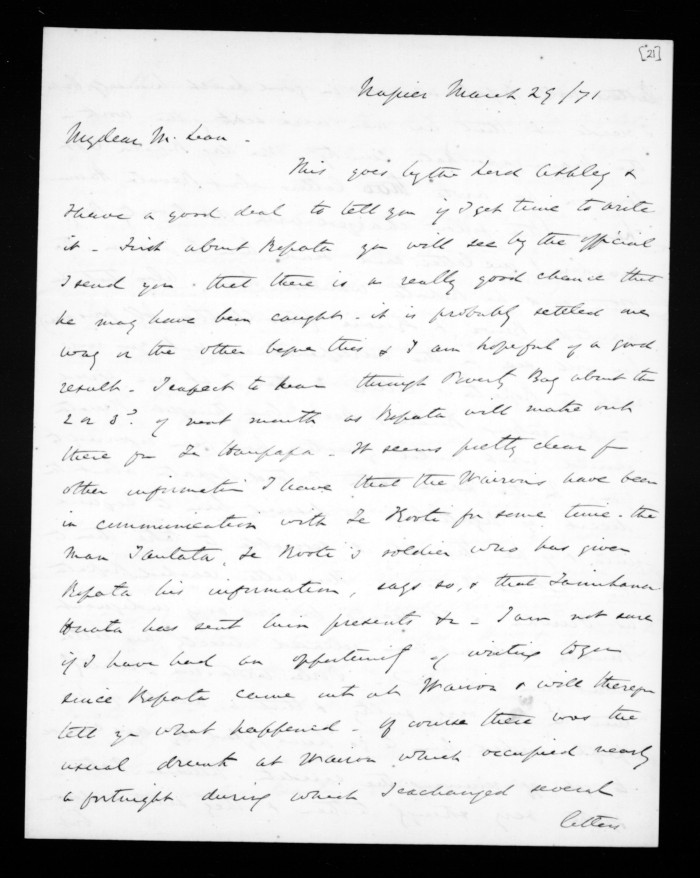 [21]
Napier March 29/71
My dear McLean -
This goes by the Lord Ashley &
I have a good deal to tell you if I get time to write
it - First about Ropata you will see by the official
I send you - that there is a really good chance that
he may have been caught - it is probably settled one
way or the other before this & I am hopeful of a good
result - I expect to hear through Poverty Bay about the
2 or 3d. of next month as Ropata will make out
there for Te Haupapa - It seems pretty clear fm
other information I have that the Wairoas have been
in communication with Te Kooti for some time - the
man Tautata, Te Kooti's soldier who has given
Ropata his information, says so, & that Tamihana
Huata has sent him presents &c - I am not sure
if I have had an opportunity of writing to you
since Ropata came out at Wairoa & will therefore
tell you what happened - Of course there was the
usual drunk at Wairoa which occupied nearly
a fortnight during which I exchanged several
letters